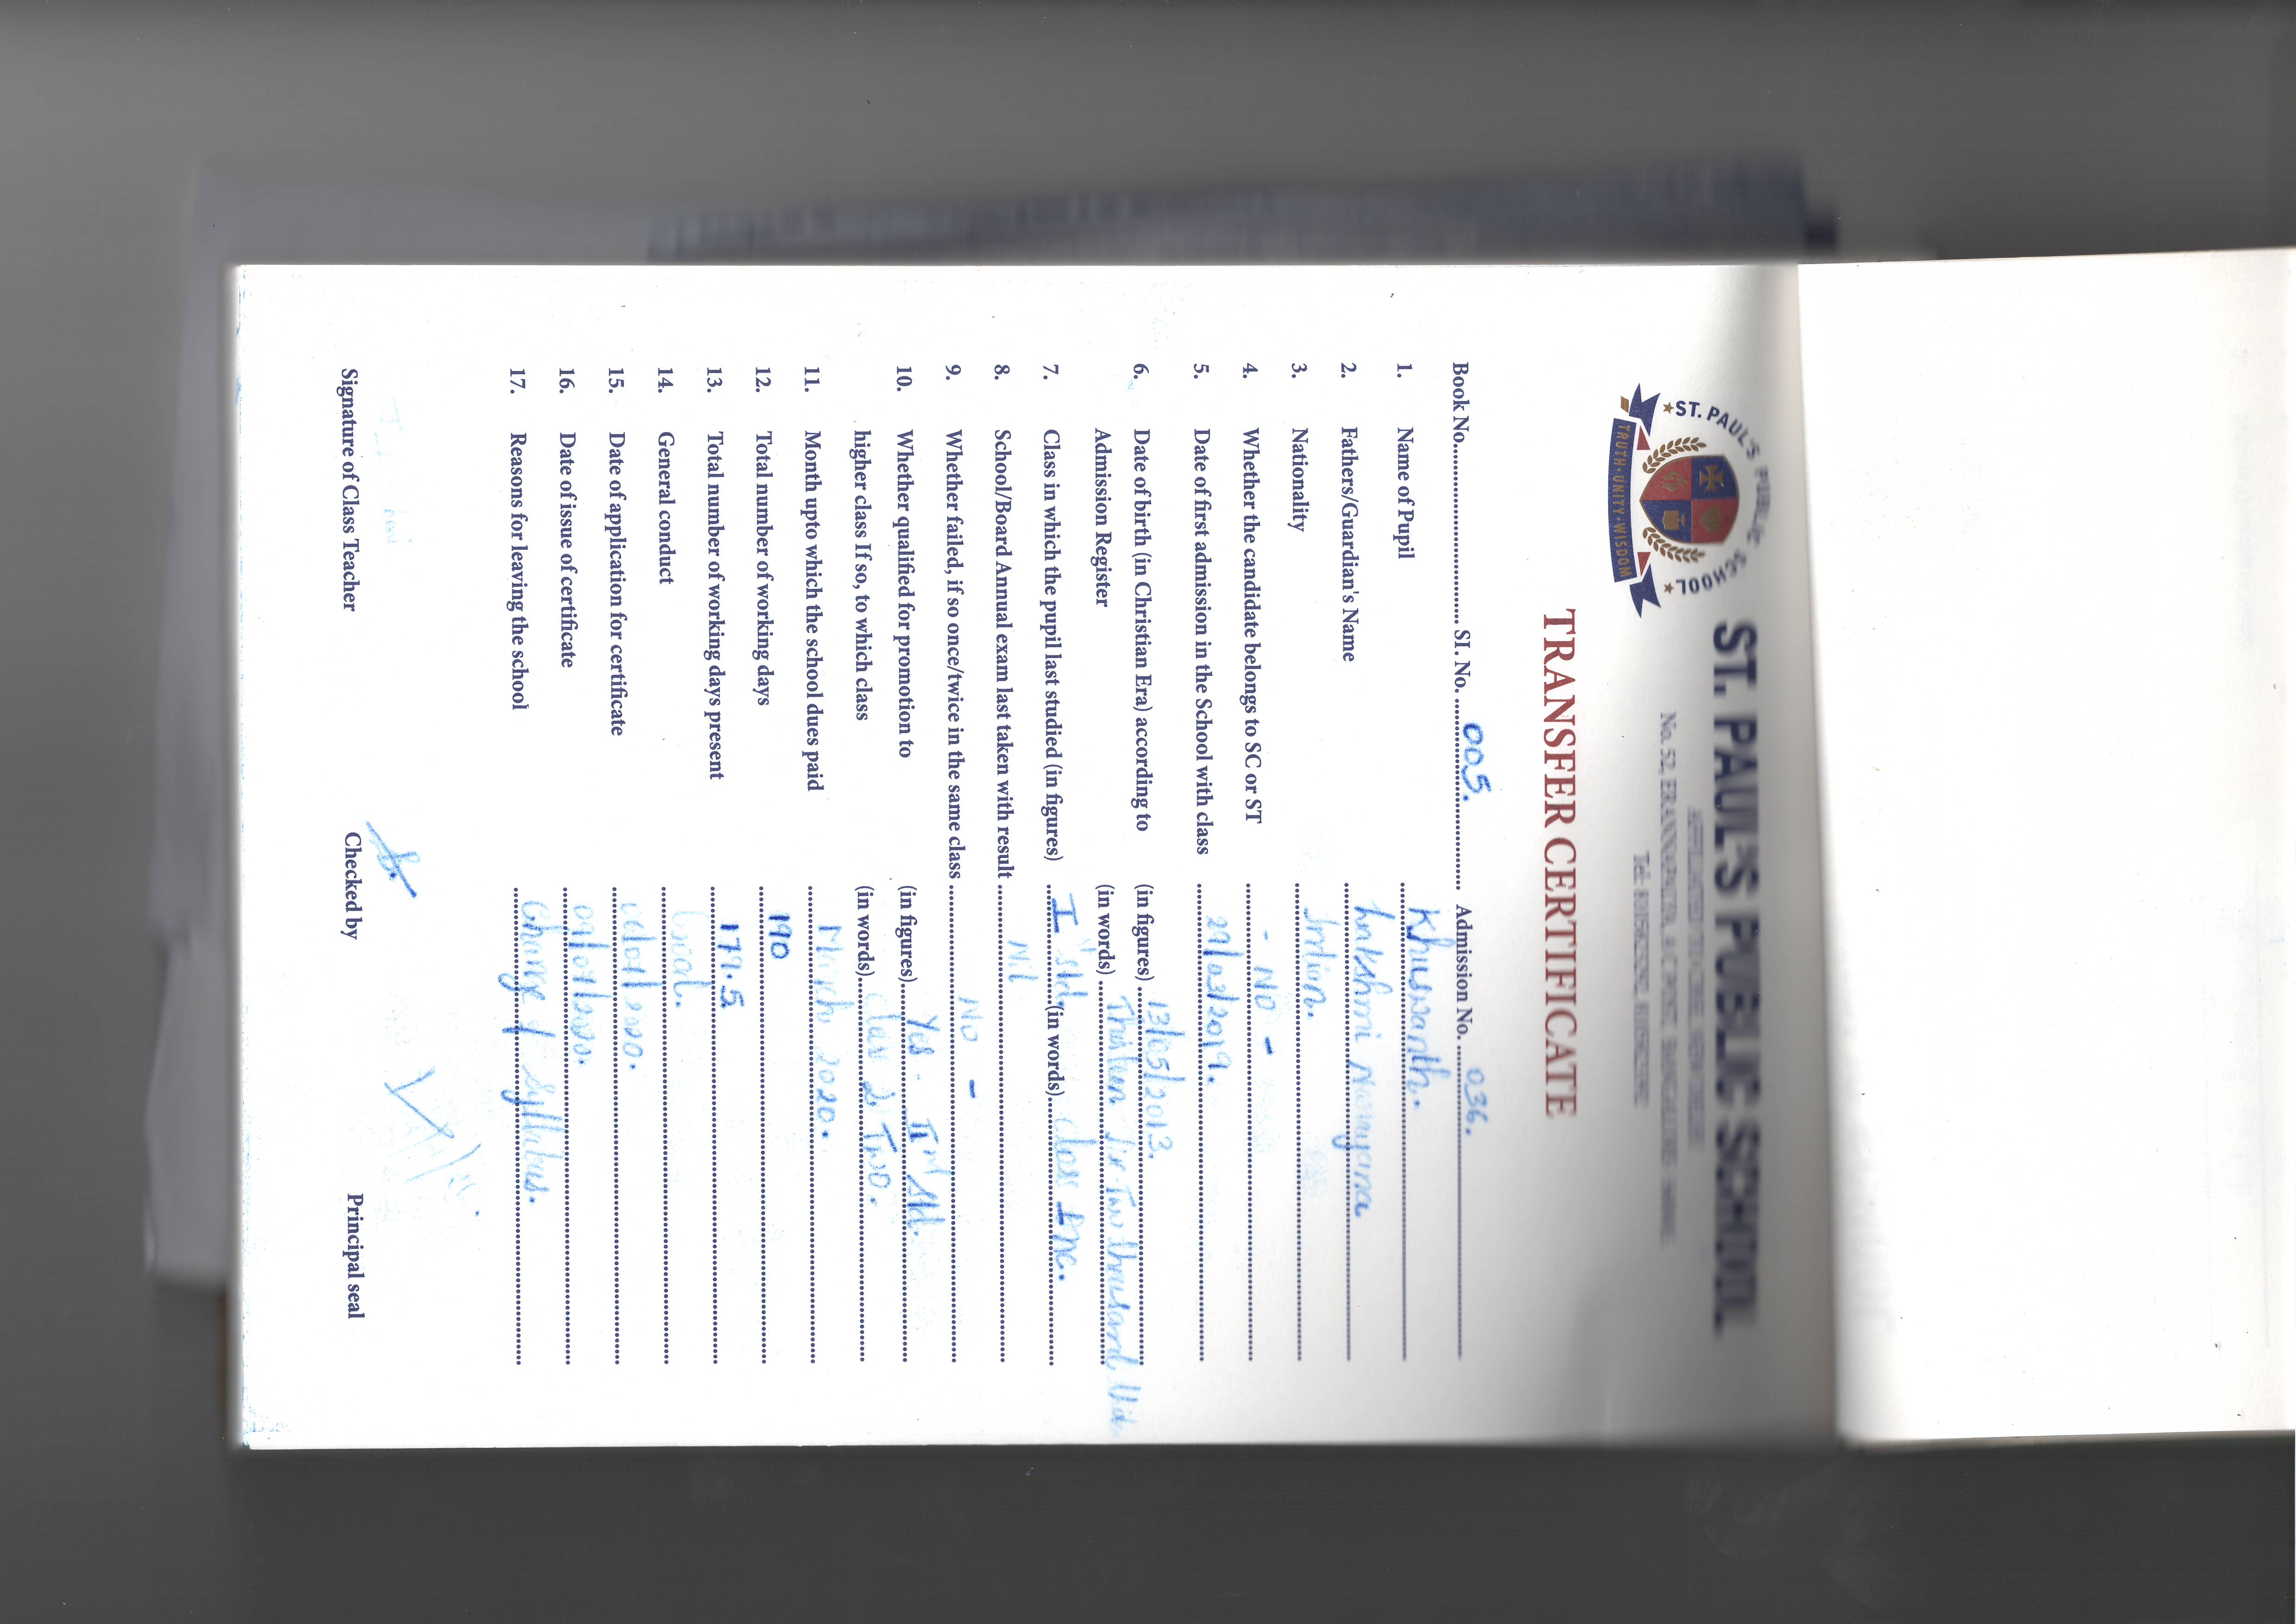 ST. PAUL'S PUBLIC SCHOOL
TRUTH·UNITY·WISDOM
ST. PAUL'S PUBLIC SCHOOL
No. 52,
TRANSFER CERTIFICATE
Book No. SI. No. 005. Admission No. 036.
1. Name of Pupil Khuswanth.
2. Fathers/Guardian's Name Lakshmi Narayana
3. Nationality Indian.
4. Whether the candidate belongs to SC or ST - NO -
5. Date of first admission in the School with class 29/03/2019.
6. Date of birth (in Christian Era) according to (in figures) 13/05/2013.
Admission Register (in words) Two thousand
7. Class in which the pupil last studied (in figures) I std, (in words) class One.
8. School/Board Annual exam last taken with result Nil
9. Whether failed, if so once/twice in the same class NO -
10. Whether qualified for promotion to (in figures) Yes. II nd std.
higher class If so, to which class (in words) class 2 Two.
11. Month upto which the school dues paid March 2020.
12. Total number of working days 190
13. Total number of working days present 179.5
14. General conduct Good.
15. Date of application for certificate
16. Date of issue of certificate
17. Reasons for leaving the school Change of Syllabus.
Signature of Class Teacher Checked by Principal seal